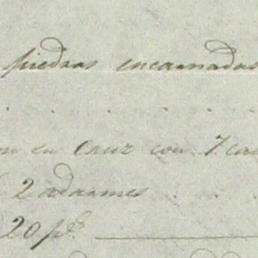 piedras encarnadas
en Cruz con 7
2 adarmes
20 p.s